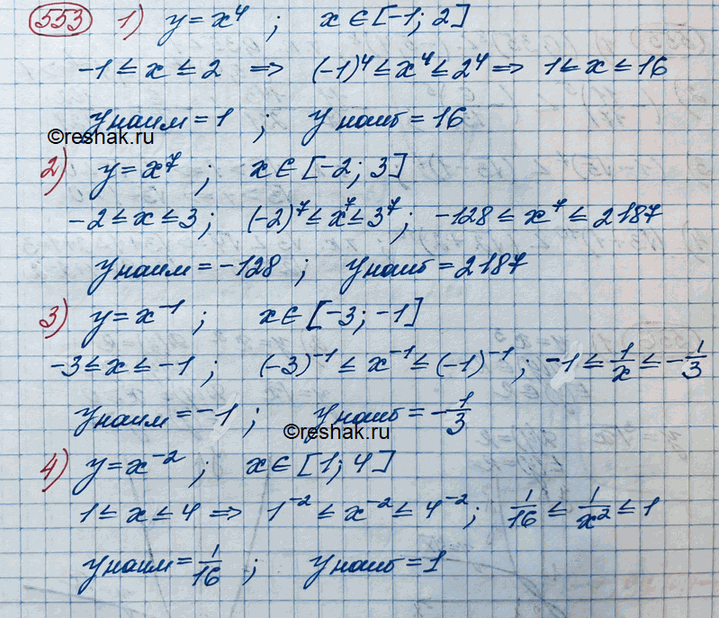 553 1) y = x⁴ ; x ∈ [-1; 2]
-1 ≤ x ≤ 2 ⇒ (-1)⁴ ≤ x⁴ ≤ 2⁴ ⇒ 1 ≤ x ≤ 16
y наим = 1 ; y наиб = 16
©reshak.ru
2) y = x⁷ ; x ∈ [-2; 3]
-2 ≤ x ≤ 3; (-2)⁷ ≤ x⁷ ≤ 3⁷; -128 ≤ x⁷ ≤ 2187
y наим = -128 ; y наиб = 2187
3) y = x⁻¹ ; x ∈ [-3; -1]
-3 ≤ x ≤ -1 ; (-3)⁻¹ ≤ x⁻¹ ≤ (-1)⁻¹ ; -1 ≤ 1/x ≤ -1/3
y наим = -1 ; y наиб = -1/3
©reshak.ru
4) y = x⁻² ; x ∈ [1; 4]
1 ≤ x ≤ 4 ⇒ 1⁻² ≤ x⁻² ≤ 4⁻² ; 1/16 ≤ 1/x² ≤ 1
y наим = 1/16 ; y наиб = 1